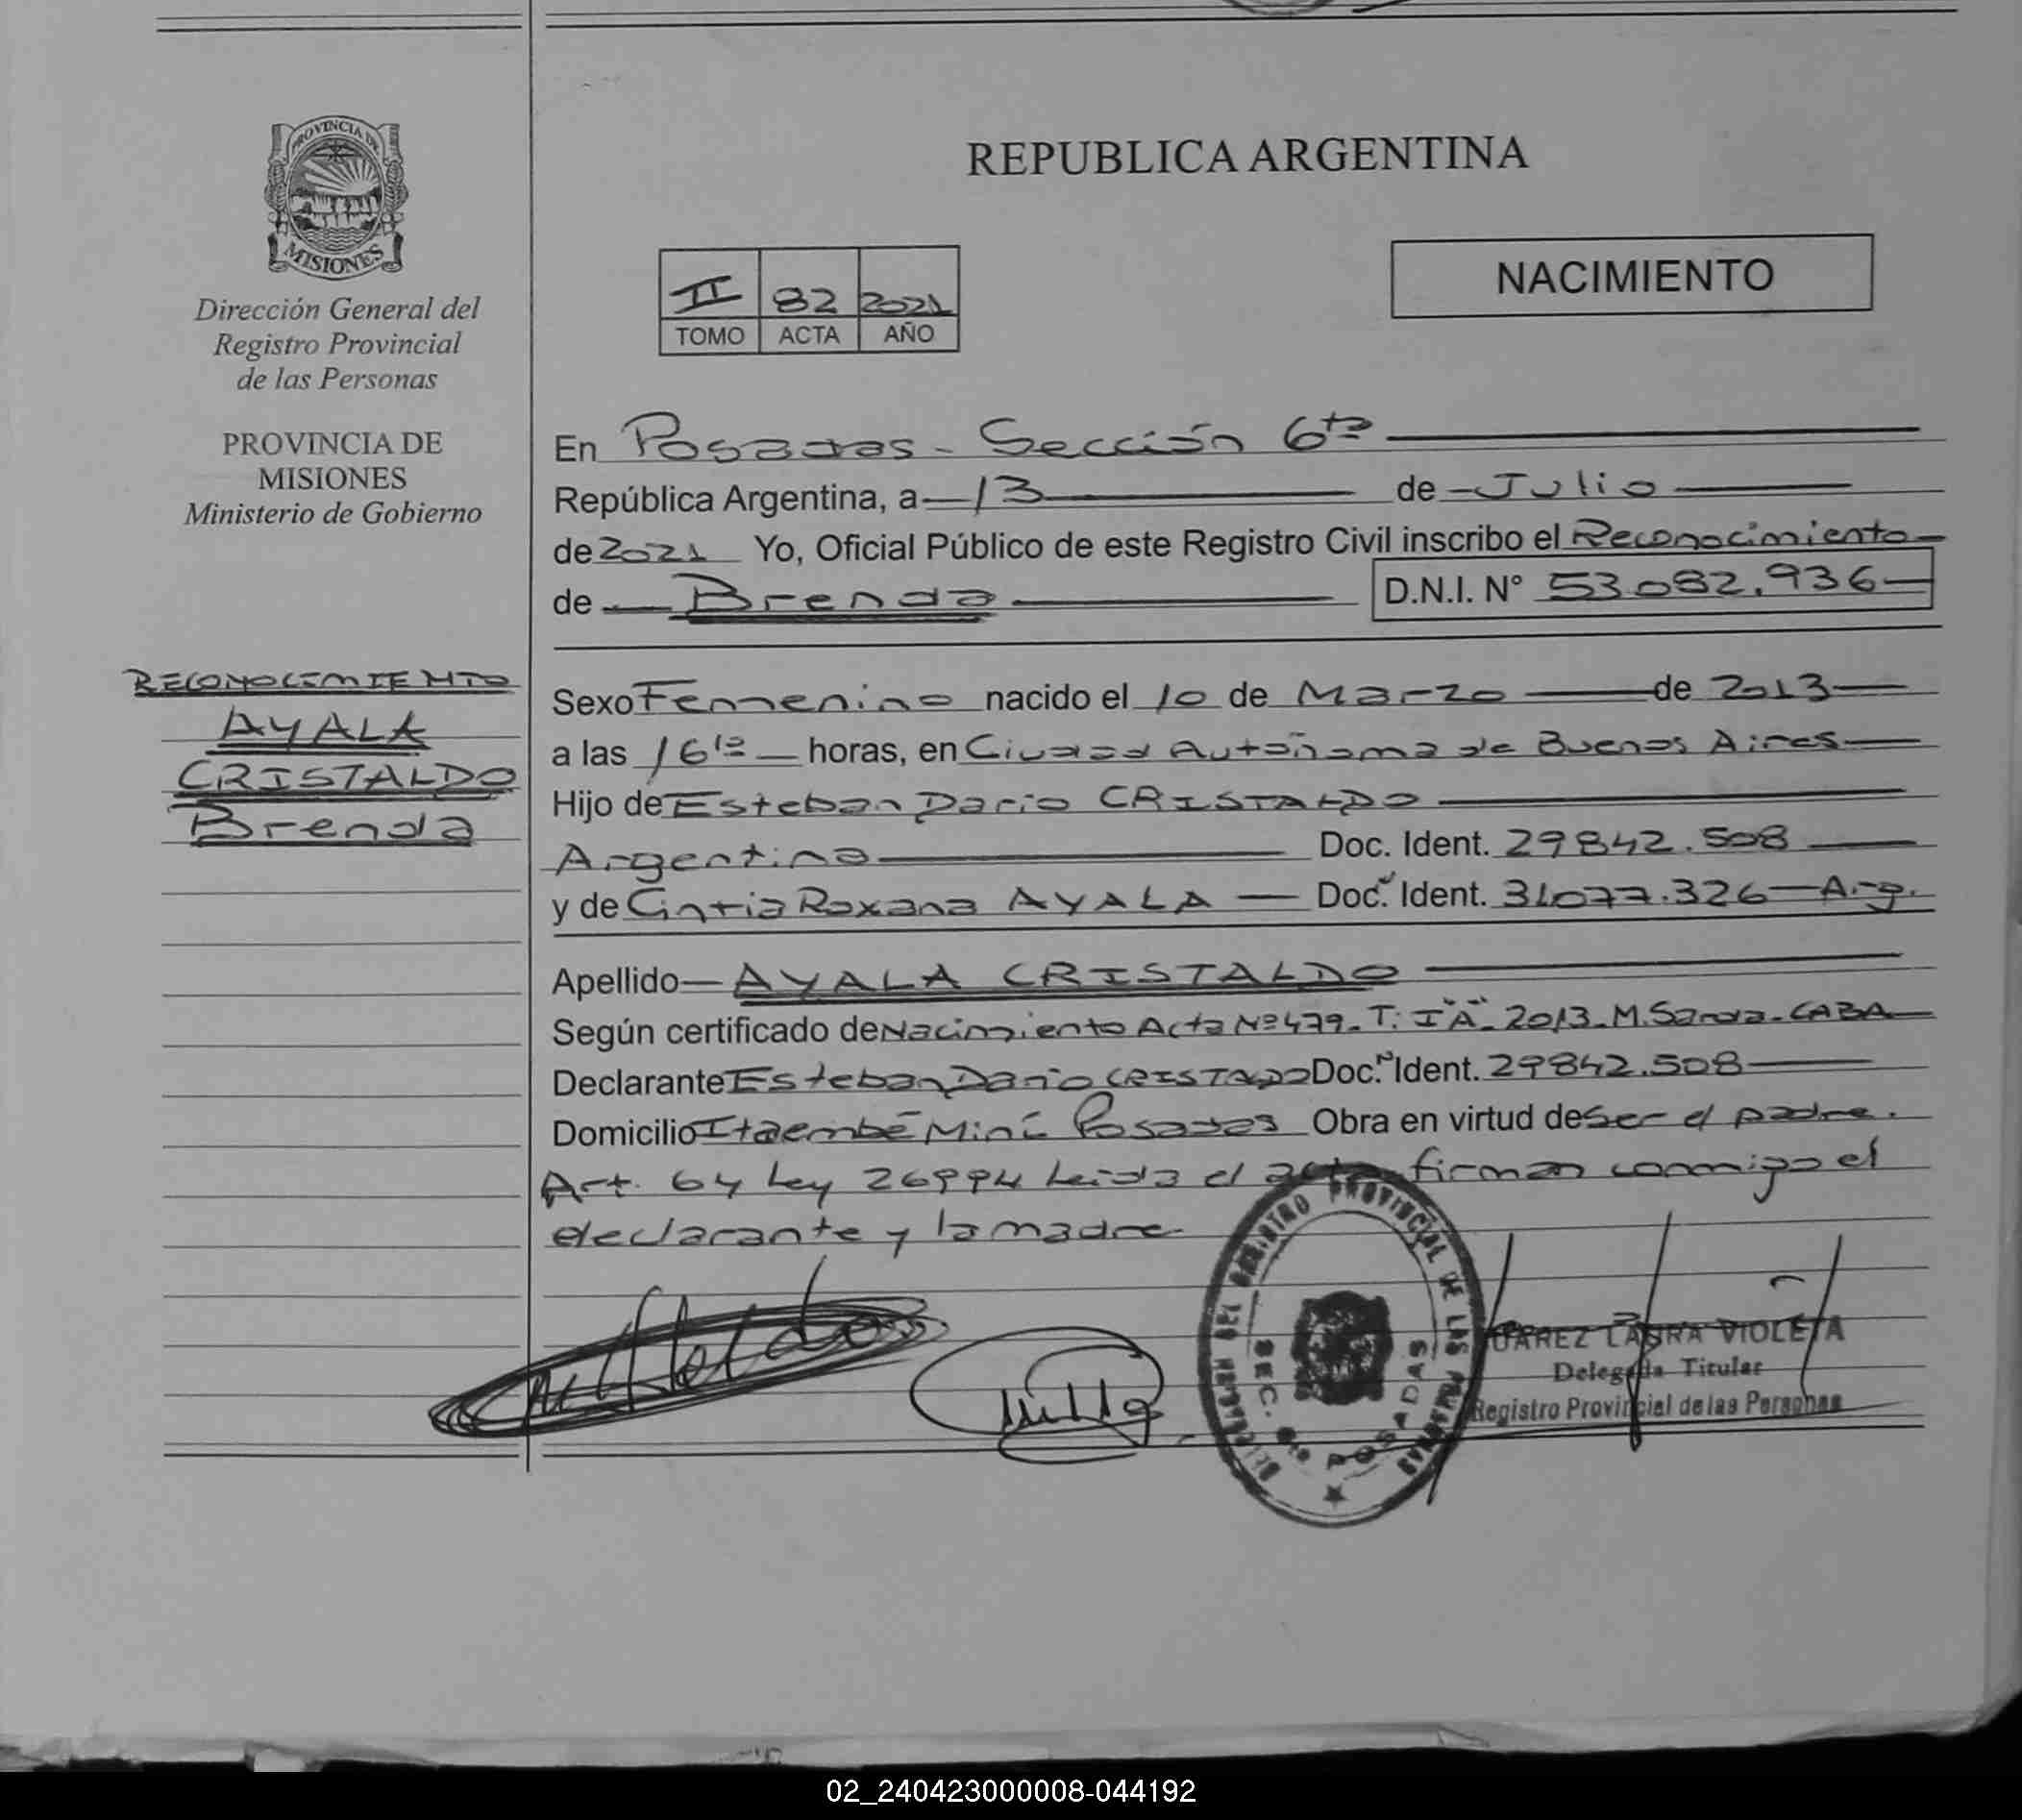 PROVINCIA DE
MISIONES
Dirección General del
Registro Provincial
de las Personas
PROVINCIA DE
MISIONES
Ministerio de Gobierno
RECONOCIMIENTO
AYALA
CRISTALDO
Brenda
REPUBLICA ARGENTINA
II 82 2021
TOMO ACTA AÑO
NACIMIENTO
En Posadas - Sección 6ta
República Argentina, a 13 de Julio
de 2021 Yo, Oficial Público de este Registro Civil inscribo el Reconocimiento
de Brenda D.N.I. N° 53.082.936
Sexo Femenino nacido el 10 de Marzo de 2013
a las horas, en Ciudad Autónoma de Buenos Aires
Hijo de Esteban Dario CRISTALDO
Argentino Doc. Ident. 29842.508
y de Cintia Roxana AYALA Doc. Ident. 31077.326 Arg.
Apellido AYALA CRISTALDO
Según certificado de Nacimiento Acta Nº 479. T: I "A". 2013. CABA
Declarante Esteban Dario CRISTALDO Doc. Ident. 29842.508
Domicilio Itaembé Miní Posadas Obra en virtud de ser el padre.
Art. 64 Ley 26994 Leida el acta firman conmigo el
declarante y la madre
REGISTRO PROVINCIAL DE LAS PERSONAS
SEC. 6ta POSADAS
LAURA VIOLETA
Delegada Titular
Registro Provincial de las Personas
02_240423000008-044192